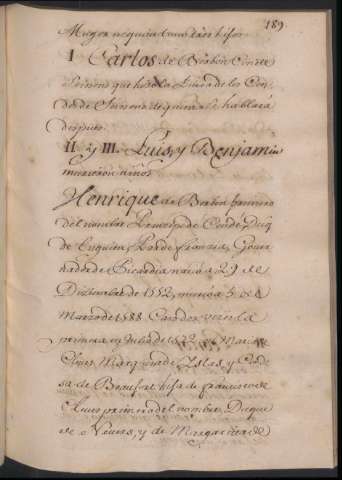 189
Muger
I Carlos de Borbon Conde
Soisons que hizo la Linea de los Con
des de Soisons de quien se hablará
despues.
II y III. Luis, y Benjamin
murieron niños
Henrique de Borbon primero
del nombre Principe de Conde, Duq
de Enguien, Par de Francia, Gover
nador de Picardia nacio a 29 de
Diciembre de 1552, murió a 5 de
Marzo de 1588. Casó dos veces la
primera en Julio de 1572 Maria de
Cleves Marquesa de Isles, y Conde
sa de Beaufort hija de Francisco de
Cleves primero del nombre, Duque
de Nevers, y de Margarita de